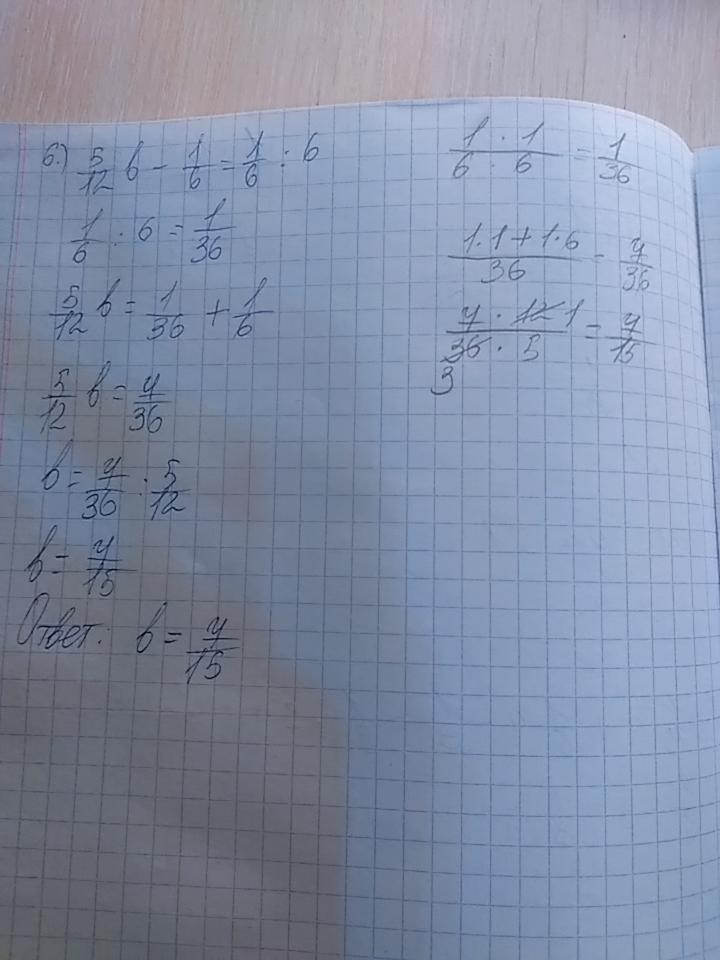 б.) 5/12 в - 1/6 = 1/6 : 6
1/6 : 6 = 1/36
5/12 в = 1/36 + 1/6
5/12 в = 7/36
в = 7/36 : 5/12
в = 7/15
Ответ: в = 7/15
1 · 1 / 6 · 6 = 1/36
1·1+1·6 / 36 = 7/36
7 · 12 1 / 36 · 5 = 7/15
3